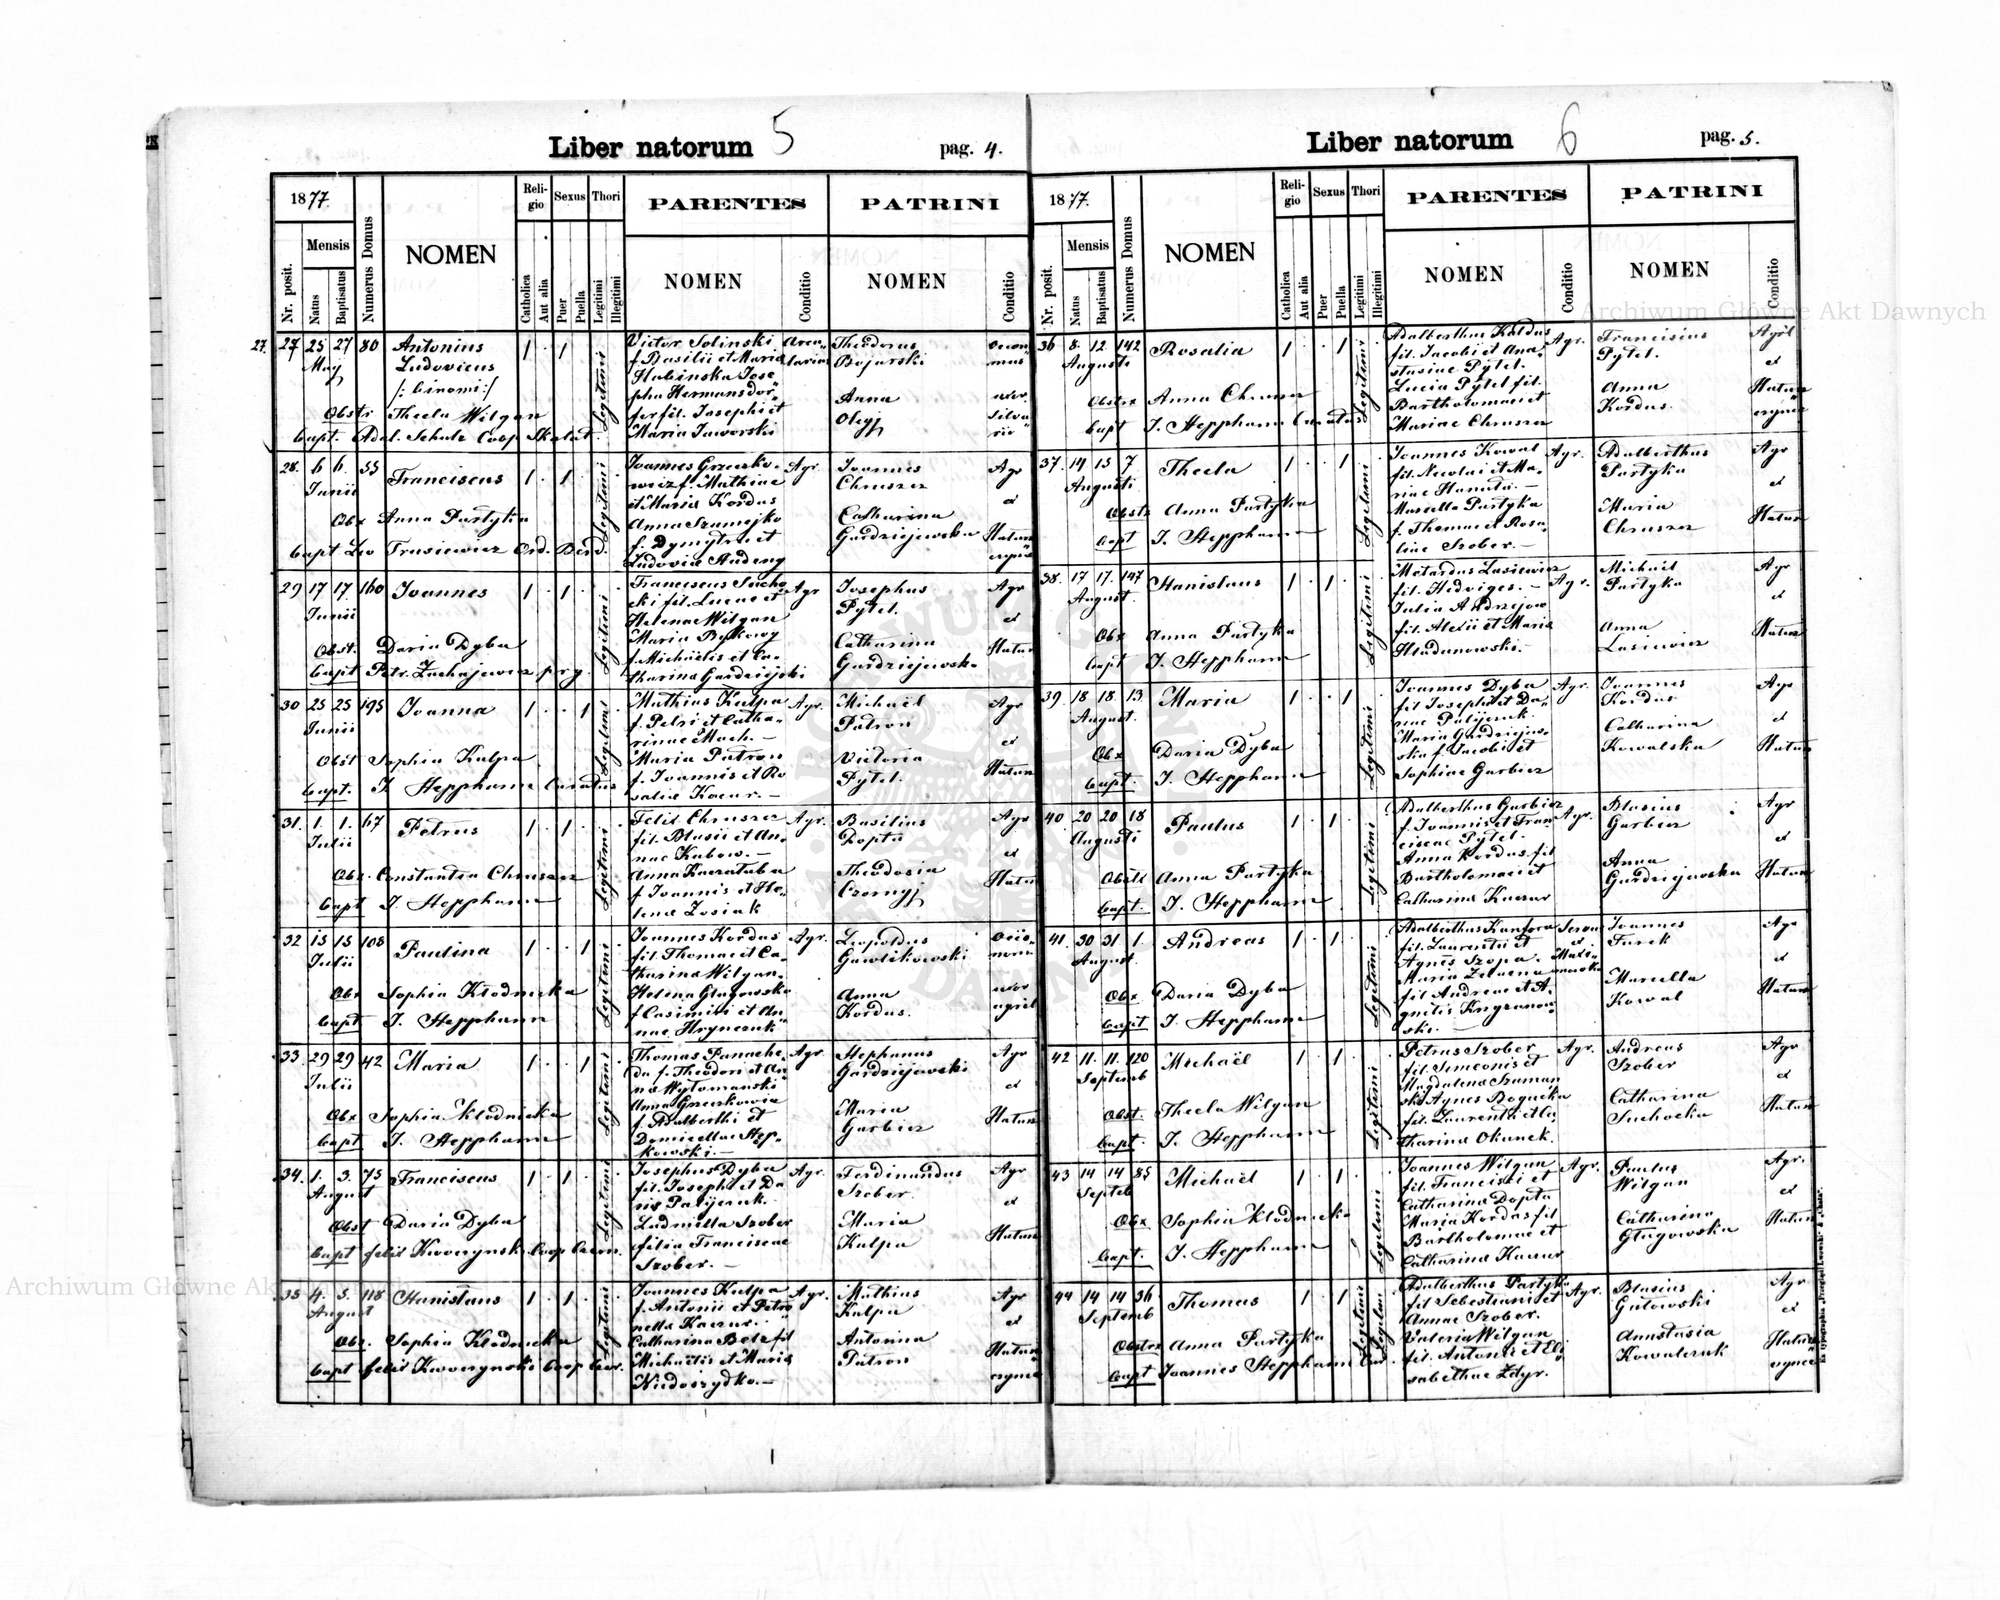 Liber natorum 5 pag. 4.
1877.
Nr. posit.
Mensis
Natus
Baptisatus
Numerus Domus
NOMEN
Religio
Catholica
Aut alia
Sexus
Puer
Puella
Thori
Legitimi
Illegitimi
PARENTES
NOMEN
Conditio
PATRINI
NOMEN
Conditio
27. 27 25 27 80 Antonius
May Ludovicus
/: binomi :/
Obstr Thecla Wilgan
bapt. Adal. Schulz Coop Skalat.
Legitimi
Victor Solinski
f. Basilii et Maria
Hubinska Jose
pha Hermansdor
fer fil. Josephi et
Maria Jaworski
Theodorus
Bojarski
Anna
28. 6 6. 55 Franciscus
Junii
Obx Anna Partyka
bapt Leo Trusiewicz Ord. Berd.
Legitimi
Joannes Grzesko
wicz f. Mathiae
et Maria Kordus
Anna Szumejko
f. Dymytra et
Agr.
Joannes
Chruszcz
Catharina
Gardziejewska
Agr
et
29 17 17 160 Joannes
Junii
Obst. Daria Dyba
bapt Petr. Zachajewicz
Legitimi
Franciscus Sucho
cki fil. Lucae et
Helenae Wilgan
Maria Bykowy
f. Michaëlis et Ca
tharina Gardziejski
Agr
Josephus
Pytel.
Catharina
Gardziejewska
Agr
et
30 25 25 195 Joanna
Junii
Obst Sophia Kulpa
bapt. J. Stepphann Curatus
Legitimi
Mathias Kulpa
f. Petri et Catha
rinae Mach. –
Maria Patron
f. Joannis et Ro
salia Kaczur. –
Agr.
Michaël
Patron
Victoria
Pytel.
Agr
et
31. 1. 1. 67 Petrus
Julii
Obx. Constantia Chruszcz
bapt J. Stepphann
Legitimi
Felix Chruszcz
fil. Blasii et An
nae Kubow. –
Anna Kaczaluba
f Joannis et He
lena Zosiuk
Agr.
Basilius
Dopta
Theodosia
Czornyj
Agr
et
32 15 15 108 Paulina
Julii
Obx Sophia Klodnicka
bapt J. Stepphann
Legitimi
Joannes Kordus
fil. Thomae et Ca
tharina Wilgan.
Helena Glugowska
f Casimiri et An
nae Hrynczuk
Agr.
Leopoldus
Gawlikowski
Anna
Kordus.
33. 29 29 42 Maria
Julii
Obx Sophia Klodnicka
bapt J. Stepphann
Legitimi
Thomas Panache
da f. Theodori et An
na Wytomanski
Anna Grzeskowia
f. Adalberthi et
Domicellae Step
kowski. –
Agr.
Stephanus
Gardziejewski
Maria
Garbicz
Agr
et
34. 1. 3. 75 Franciscus
August
Obst Daria Dyba
bapt felix Kworzynski Coop
Legitimi
Josephus Dyba
fil. Josephi et Da
ria Palijczuk.
Ludmilla Szober
filia Franciscae
Szober. –
Agr.
Ferdinandus
Szober.
Maria
Kulpa
Agr
et
35 4. 5. 118 Stanislaus
August
Obx. Sophia Klodnicka
bapt felix Kworzynski Coop
Legitimi
Joannes Kulpa
f. Antonii et Petro
nella Kaczur.
Catharina Belz fil
Michaëlis et Maria
Niedoszydko. –
Agr.
Mathias
Kulpa
Antonina
Patron
Agr
et
Liber natorum 6 pag. 5.
1877.
Nr. posit.
Mensis
Natus
Baptisatus
Numerus Domus
NOMEN
Religio
Catholica
Aut alia
Sexus
Puer
Puella
Thori
Legitimi
Illegitimi
PARENTES
NOMEN
Conditio
PATRINI
NOMEN
Conditio
36 8. 12. 142 Rosalia
Augusti
Obstx Anna Chruszcz
bapt J. Stepphann Curatus
Legitimi
Adalberthus Kordus
fil. Jacobi et Ana
stasiae Pytel.
Lucia Pytel fil.
Bartholomaei et
Mariae Chruszcz
Agr.
Franciscus
Pytel.
Anna
Kordus.
et
37. 14 15 7 Thecla
Augusti
Obstx Anna Partyka
bapt J. Stepphann
Legitimi
Joannes Kowal
fil. Nicolai et Ma
riae Hanuta. –
Marcella Partyka
f. Thomae et Rosa
liae Szober. –
Agr.
Adalberthus
Partyka
Maria
Chruszcz
Agr
et
38. 17 17. 147 Stanislaus
August.
Obx Anna Partyka
bapt J. Stepphann
Legitimi
Metardus Lasiewicz
fil. Hedviges. –
Julia Andrzejow
fil. Alexii et Maria
Hladunowski. –
Agr.
Michaël
Partyka
Anna
Lasiewicz
Agr
et
39. 18 18. 13 Maria
August.
Obx Daria Dyba
bapt. J. Stepphann
Legitimi
Joannes Dyba
fil Josephi et Da
riae Palijczuk
Maria Gardziejew
ska f. Jacobi et
Sophiae Garbicz
Agr.
Joannes
Kordus
Catharina
Kowalska
Agr
et
40 20 20 18 Paulus
Augusti
Obstx Anna Partyka
bapt. J. Stepphann
Legitimi
Adalberthus Garbicz
f. Joannis et Fran
ciscae Pytel.
Anna Kordus fil
Bartholomaei et
Catharina Kaczur
Agr.
Blasius
Garbicz
Anna
Gardziejewska
Agr
et
41. 30 31. 1 Andreas
August.
Obx Daria Dyba
bapt J. Stepphann
Legitimi
Adalberthus Kantora
fil. Laurentii et
Agnes Szopa.
fil Andreae et A
gnetis
Joannes
Turek
Marcella
Kowal
Agr
et
42 11. 11. 120 Michaël
Septemb
Obst. Thecla Wilgan
bapt. J. Stepphann
Legitimi
Petrus Szober
fil. Simeonis et
Magdalena Szuman
ska Agnes Bogucka
fil. Laurentii et Ca
tharina Okunek.
Agr.
Andreas
Szober
Catharina
Suchocka
Agr
et
43 14 14 85 Michaël
Septeb
Obx Sophia Klodnicka
bapt. J. Stepphann
Legitimi
Joannes Wilgan
fil. Francisci et
Catharina Dopta
Maria Kordus fil
Bartholomae et
Catharina Kaczur
Agr.
Paulus
Wilgan
Catharina
Glugowska
Agr.
et
44 14 14 36 Thomas
Septemb
Obstrx Anna Partyka
bapt Joannes Stepphann Cur.
Legitimi
Adalberthus Partyka
fil Sebestiani et
Annae Szober.
Valeria Wilgan
fil. Antonii et Eli
sabethae Zdyr.
Agr.
Blasius
Gutowski
Annstasia
Kowalczuk
Agr
et
Archiwum Główne Akt Dawnych
Archiwum Główne Akt Dawnych